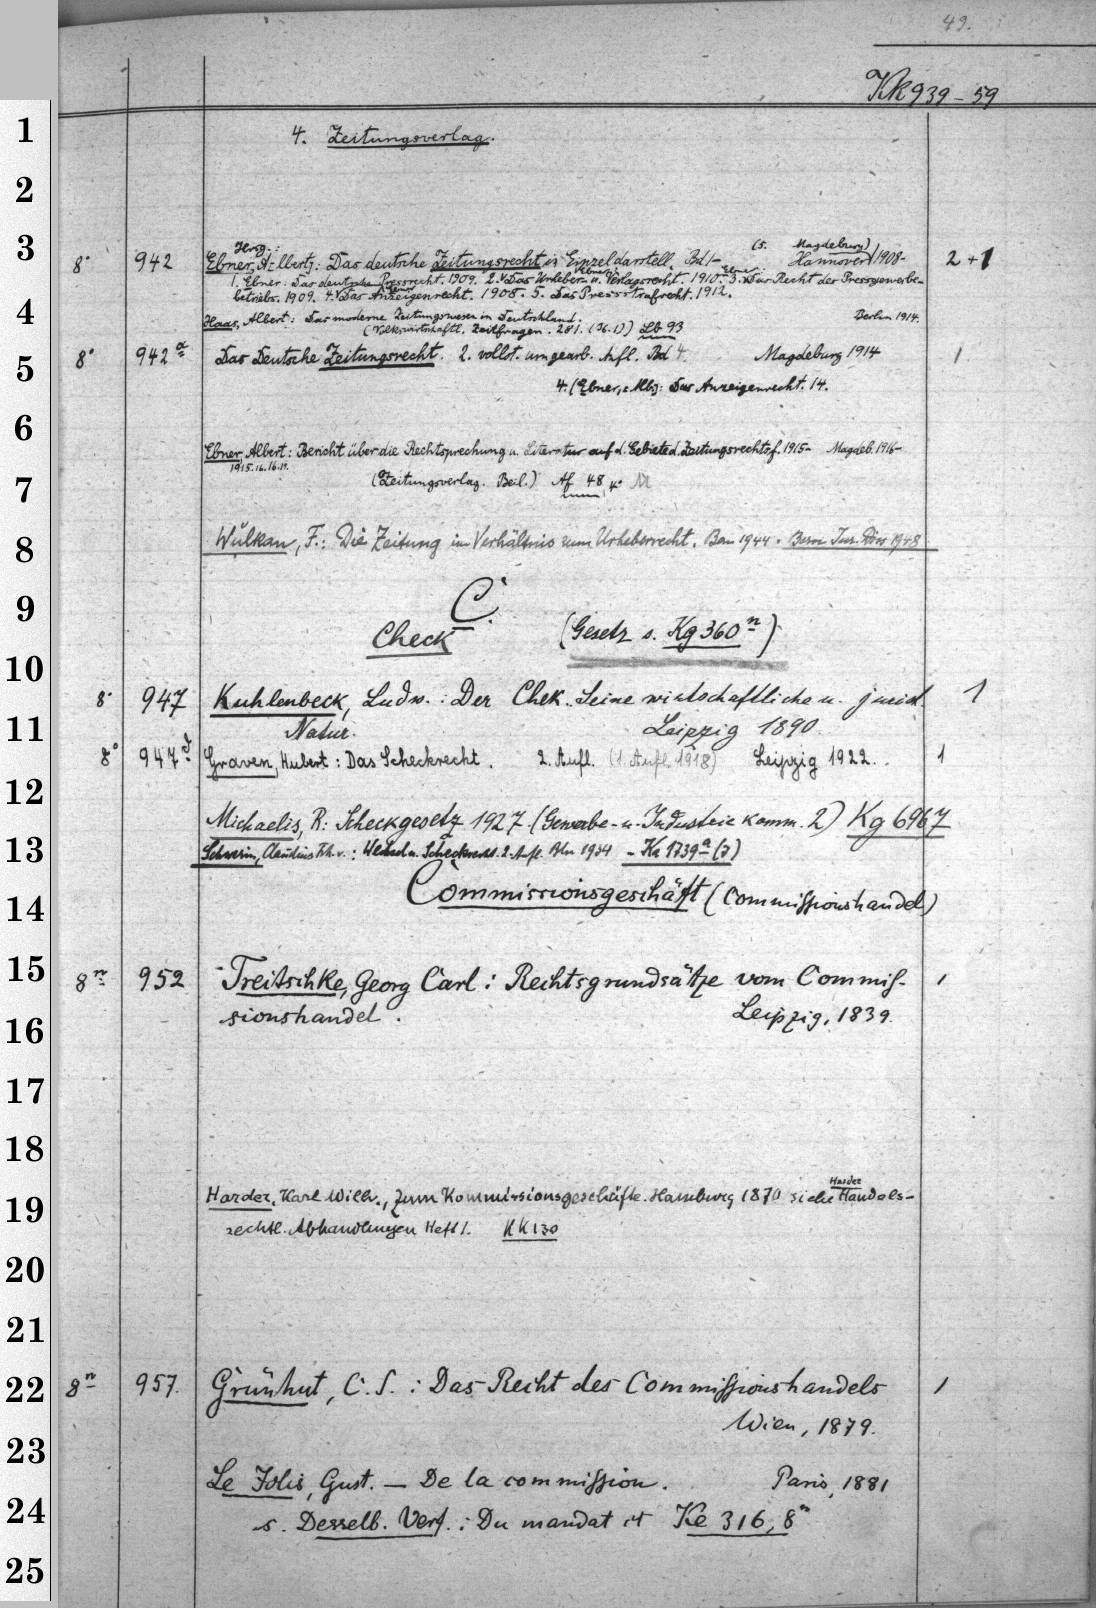 49.
Kk 939-59
1
4. Zeitungsverlag.
2
Hrsg.: (s. Magdeburg)
3 8° 942 Ebner, A-lbert]: Das deutsche Zeitungsrecht in Einzeldarstell. Bd 1- Hannover 1908- 2+1
1. Ebner: Das deutsche Pressrecht. 1909. 2. (Ebner:) Das Urheber- u. Verlagsrecht. 1910. 3. Ebner: Das Recht des Pressgewerbe-
betriebs. 1909. 4. Ebner: Das Anzeigenrecht. 1908. 5. Das Pressstrafrecht. 1912.
4 Haas, Albert: Das moderne Zeitungswesen in Deutschland. Berlin 1914.
(Volkswirtschaftl. Zeitfragen. 281. (36.1)) Lb 93
5 8° 942 a Das Deutsche Zeitungsrecht. 2. vollst. umgearb. Aufl. Bd 4. Magdeburg 1914 1
4. (Ebner, Alb]: Das Anzeigenrecht. 14.
6
Ebner, Albert: Bericht über die Rechtsprechung u. Literatur auf d. Gebiete d. Zeitungsrechts f. 1915- Magdeb. 1916-
1915. 16. 16. 17.
7 (Zeitungsverlag. Beil.) Af 48, 4°
8 Wulkan, F.: Die Zeitung im Verhältnis zum Urheberrecht. Bern 1944. Bern Jur. Diss 1948
9 C.
Check (Gesetz s. Kg 360 n)
10 8° 947 Kuhlenbeck, Ludw.: Der Chek. Seine wirtschaftliche u. jurist. 1
11 Natur. Leipzig 1890.
8° 947 d Graven, Hubert: Das Scheckrecht. 2. Aufl. (1. Aufl. 1918) Leipzig 1922. 1
12 Michaelis, R: Scheckgesetz 1927 (Gewerbe- u. Industrie Komm. 2) Kg 6967
13 Schwerin, Claudius Frh. v.: Wechsel u. Scheckrecht. 2. Aufl. Bln 1934 - Kk 1739 a (3)
14 Commissionsgeschäft (Commissionshandel)
15 8 n 952 Treitschke, Georg Carl: Rechtsgrundsätze vom Commis- 1
16 sionshandel. Leipzig, 1839.
17
18
19 Harder, Karl Wilh., Zum Kommissionsgeschäfte. Hamburg 1870 siehe Harder Handels-
rechtl. Abhandlungen Heft 1. KK 130
20
21
22 8 n 957. Grünhut, C. S.: Das Recht des Commissionshandels 1
Wien, 1879.
23
Le Jolis, Gust. — De la commission. Paris, 1881
24 s. Desselb. Verf.: Du mandat et Ke 316, 8 n
25